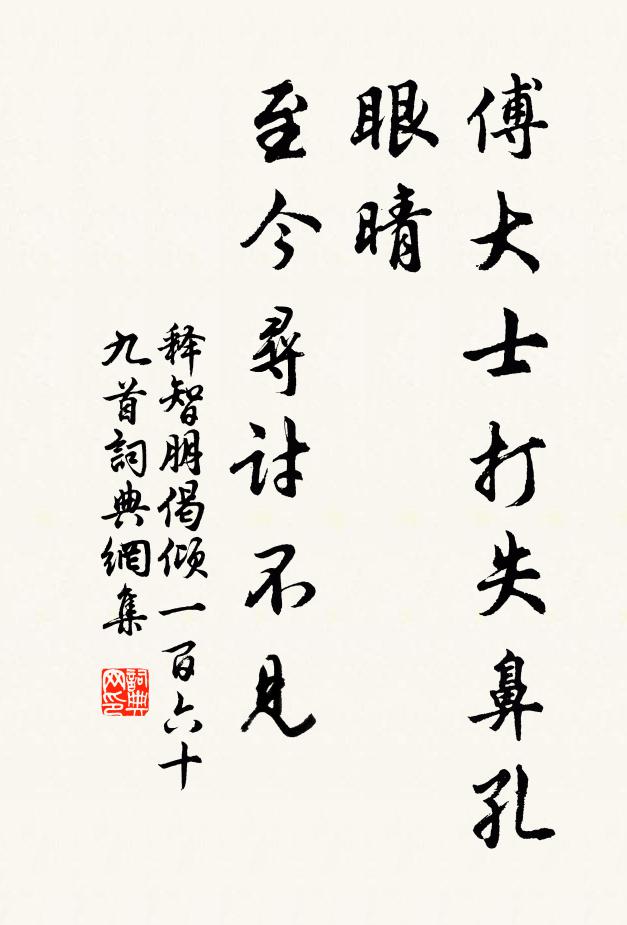 傅大士打失鼻孔
眼晴
至今尋討不見
释智朋偈倾一百六十
九首詞典網集
詞典
网印